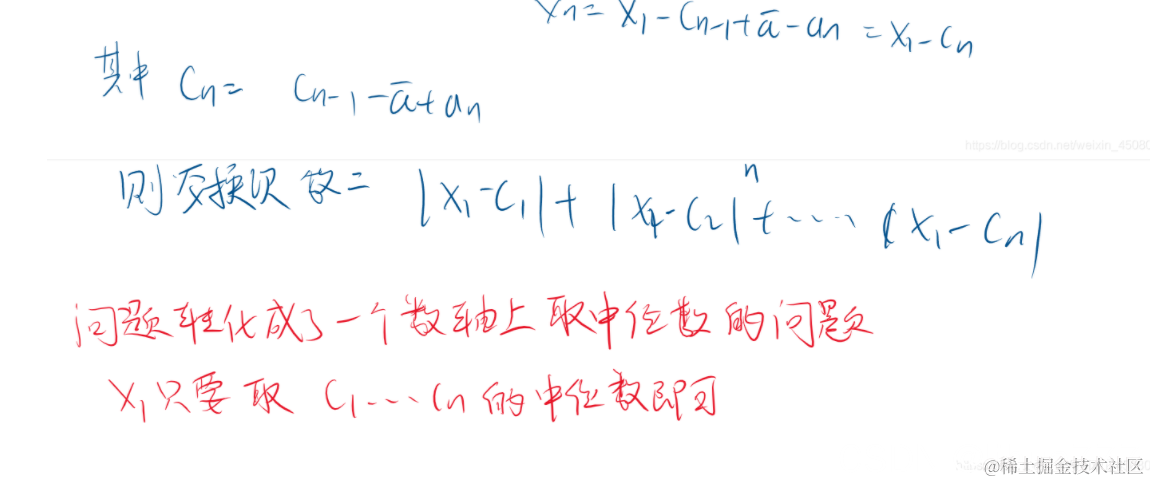 Xn = X1 - Cn-1 + ā - an = X1 - Cn
其中 Cn = Cn-1 - ā + an
https://blog.csdn.net/weixin_45080
则交换次数 = |X1 - C1| + |X1 - C2| + ...... |X1 - Cn|
n
问题转化成了一个数轴上取中位数的问题
X1只要取 C1...Cn的中位数即可
@稀土掘金技术社区